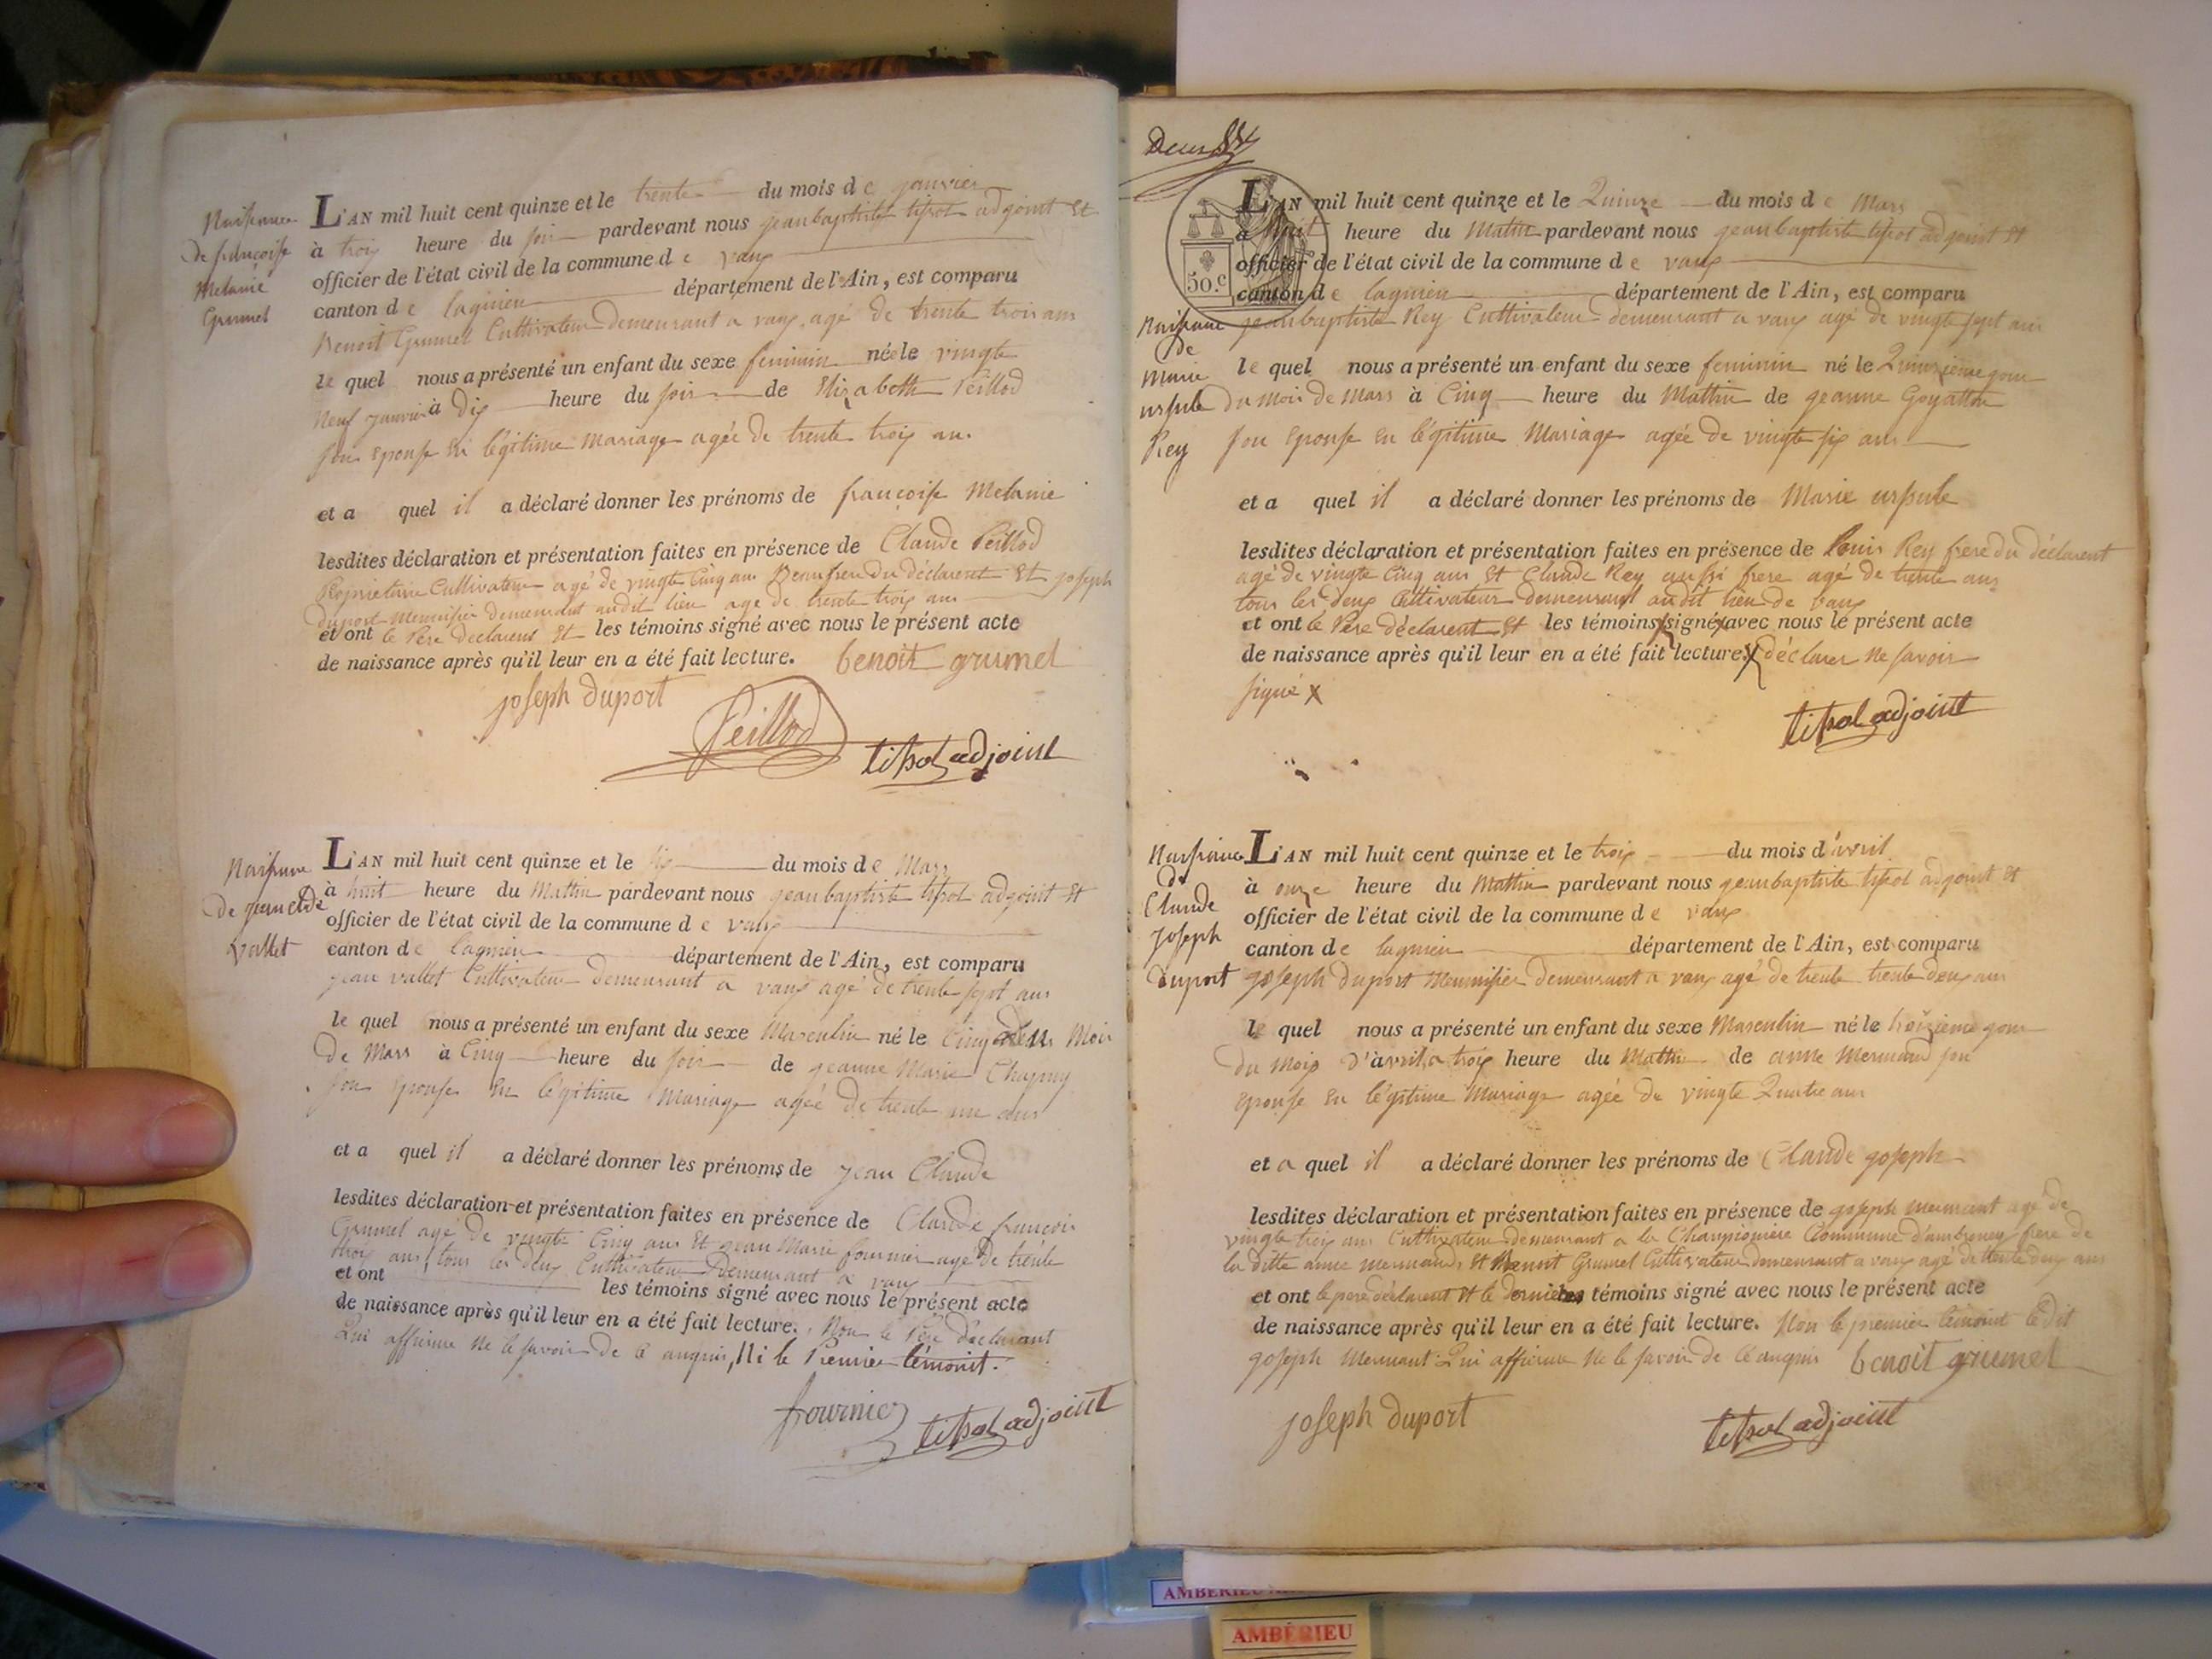 Naissance
de françoise
Melanie
Grumel
L'AN mil huit cent quinze et le trente du mois de janvier
à trois heure du soir pardevant nous jeanbaptiste tissot adjoint et
officier de l'état civil de la commune de vaux
canton de lagnieu département de l'Ain, est comparu
Benoit Grumel Cultivateur demeurant a vaux agé de trente trois ans
le quel nous a présenté un enfant du sexe feminin née le vingte
Neuf janvier à dix heure du soir de Elizabeth Peillod
son Epouse En légitime Mariage agée de trente trois an.
et a quel il a déclaré donner les prénoms de françoise Melanie
lesdites déclaration et présentation faites en présence de Claude Peillod
Propriétaire Cultivateur agé de vingte Cinq ans Beaufrere du déclarent Et joseph
duport Menuisier demeurant audit lieu age de trente trois ans
et ont le Pere declarens Et les témoins signé avec nous le présent acte
de naissance après qu'il leur en a été fait lecture. benoit grumel
joseph duport
Peillod tissot adjoint
Naissance
de jean Claude
Vallet
L'AN mil huit cent quinze et le six du mois de Mars
à huit heure du Mattin pardevant nous jeanbaptiste tissot adjoint Et
officier de l'état civil de la commune de vaux
canton de lagnieu département de l'Ain, est comparu
jean vallet Cultivateur demeurant a vaux agé de trente sept ans
le quel nous a présenté un enfant du sexe Masculin né le Cinq du Mois
De Mars à Cinq heure du soir de jeanne Marie Chapuy
son Epouse En légitime Mariage agée de trente une ans
et a quel il a déclaré donner les prénoms de jean Claude
lesdites déclaration et présentation faites en présence de Claude françois
Grumel agé de vingte Cinq ans Et jean Marie fournier agé de trente
trois ans tous les deux Cultivateur Demeurant a vaux
et ont les témoins signé avec nous le présent acte
de naissance après qu'il leur en a été fait lecture. Non le Pere déclarant
Qui affirme Ne le savoir de ce anquis, Ni le Premier témoint.
fournier tissot adjoint
Deux
50.c
Naissance
de
Marie
ursule
Rey
L'AN mil huit cent quinze et le Quinze du mois de Mars
à huit heure du Mattin pardevant nous jeanbaptiste tissot adjoint Et
officier de l'état civil de la commune de vaux
canton de lagnieu département de l'Ain, est comparu
jeanbaptiste Rey Cultivateur demeurant a vaux agé de vingte sept ans
le quel nous a présenté un enfant du sexe feminin né le Quinzieme jour
du mois de Mars à Cinq heure du Mattin de jeanne Goyatton
son Epouse En légitime Mariage agée de vingte six ans
et a quel il a déclaré donner les prénoms de Marie ursule
lesdites déclaration et présentation faites en présence de Louis Rey frere du déclarent
agé de vingte Cinq ans Et Claude Rey aussi frere agé de trente ans
tous les deux Cultivateur demeurant audit lieu de vaux
et ont le Pere déclarent Et les témoins signé avec nous le présent acte
de naissance après qu'il leur en a été fait lecture. déclarer Ne savoir
signé X
tissot adjoint
Naissance
de
Claude
joseph
duport
L'AN mil huit cent quinze et le trois du mois d'avril
à onze heure du Mattin pardevant nous jeanbaptiste tissot adjoint Et
officier de l'état civil de la commune de vaux
canton de lagnieu département de l'Ain, est comparu
joseph duport Menuisier demeurant a vaux agé de trente trente deux ans
le quel nous a présenté un enfant du sexe Masculin né le troizieme jour
du Mois d'avril a trois heure du Mattin de anne Mermand son
Epouse En légitime Mariage agée de vingte Quatre ans
et a quel il a déclaré donner les prénoms de Claude joseph
lesdites déclaration et présentation faites en présence de joseph Mermant agé de
vingte trois ans Cultivateur demeurant a la Championiere Commune d'ambroney frere de
la ditte anne mermand, Et Benoit Grumel Cultivateur demeurant a vaux agé de trente deux ans
et ont le pere déclarent Et le dernier témoins signé avec nous le présent acte
de naissance après qu'il leur en a été fait lecture. Non le premier témoint Ledit
joseph Mermant Qui affirme Ne le savoir de ce anquis benoit grumel
joseph duport tissot adjoint
AMBÉRIEU